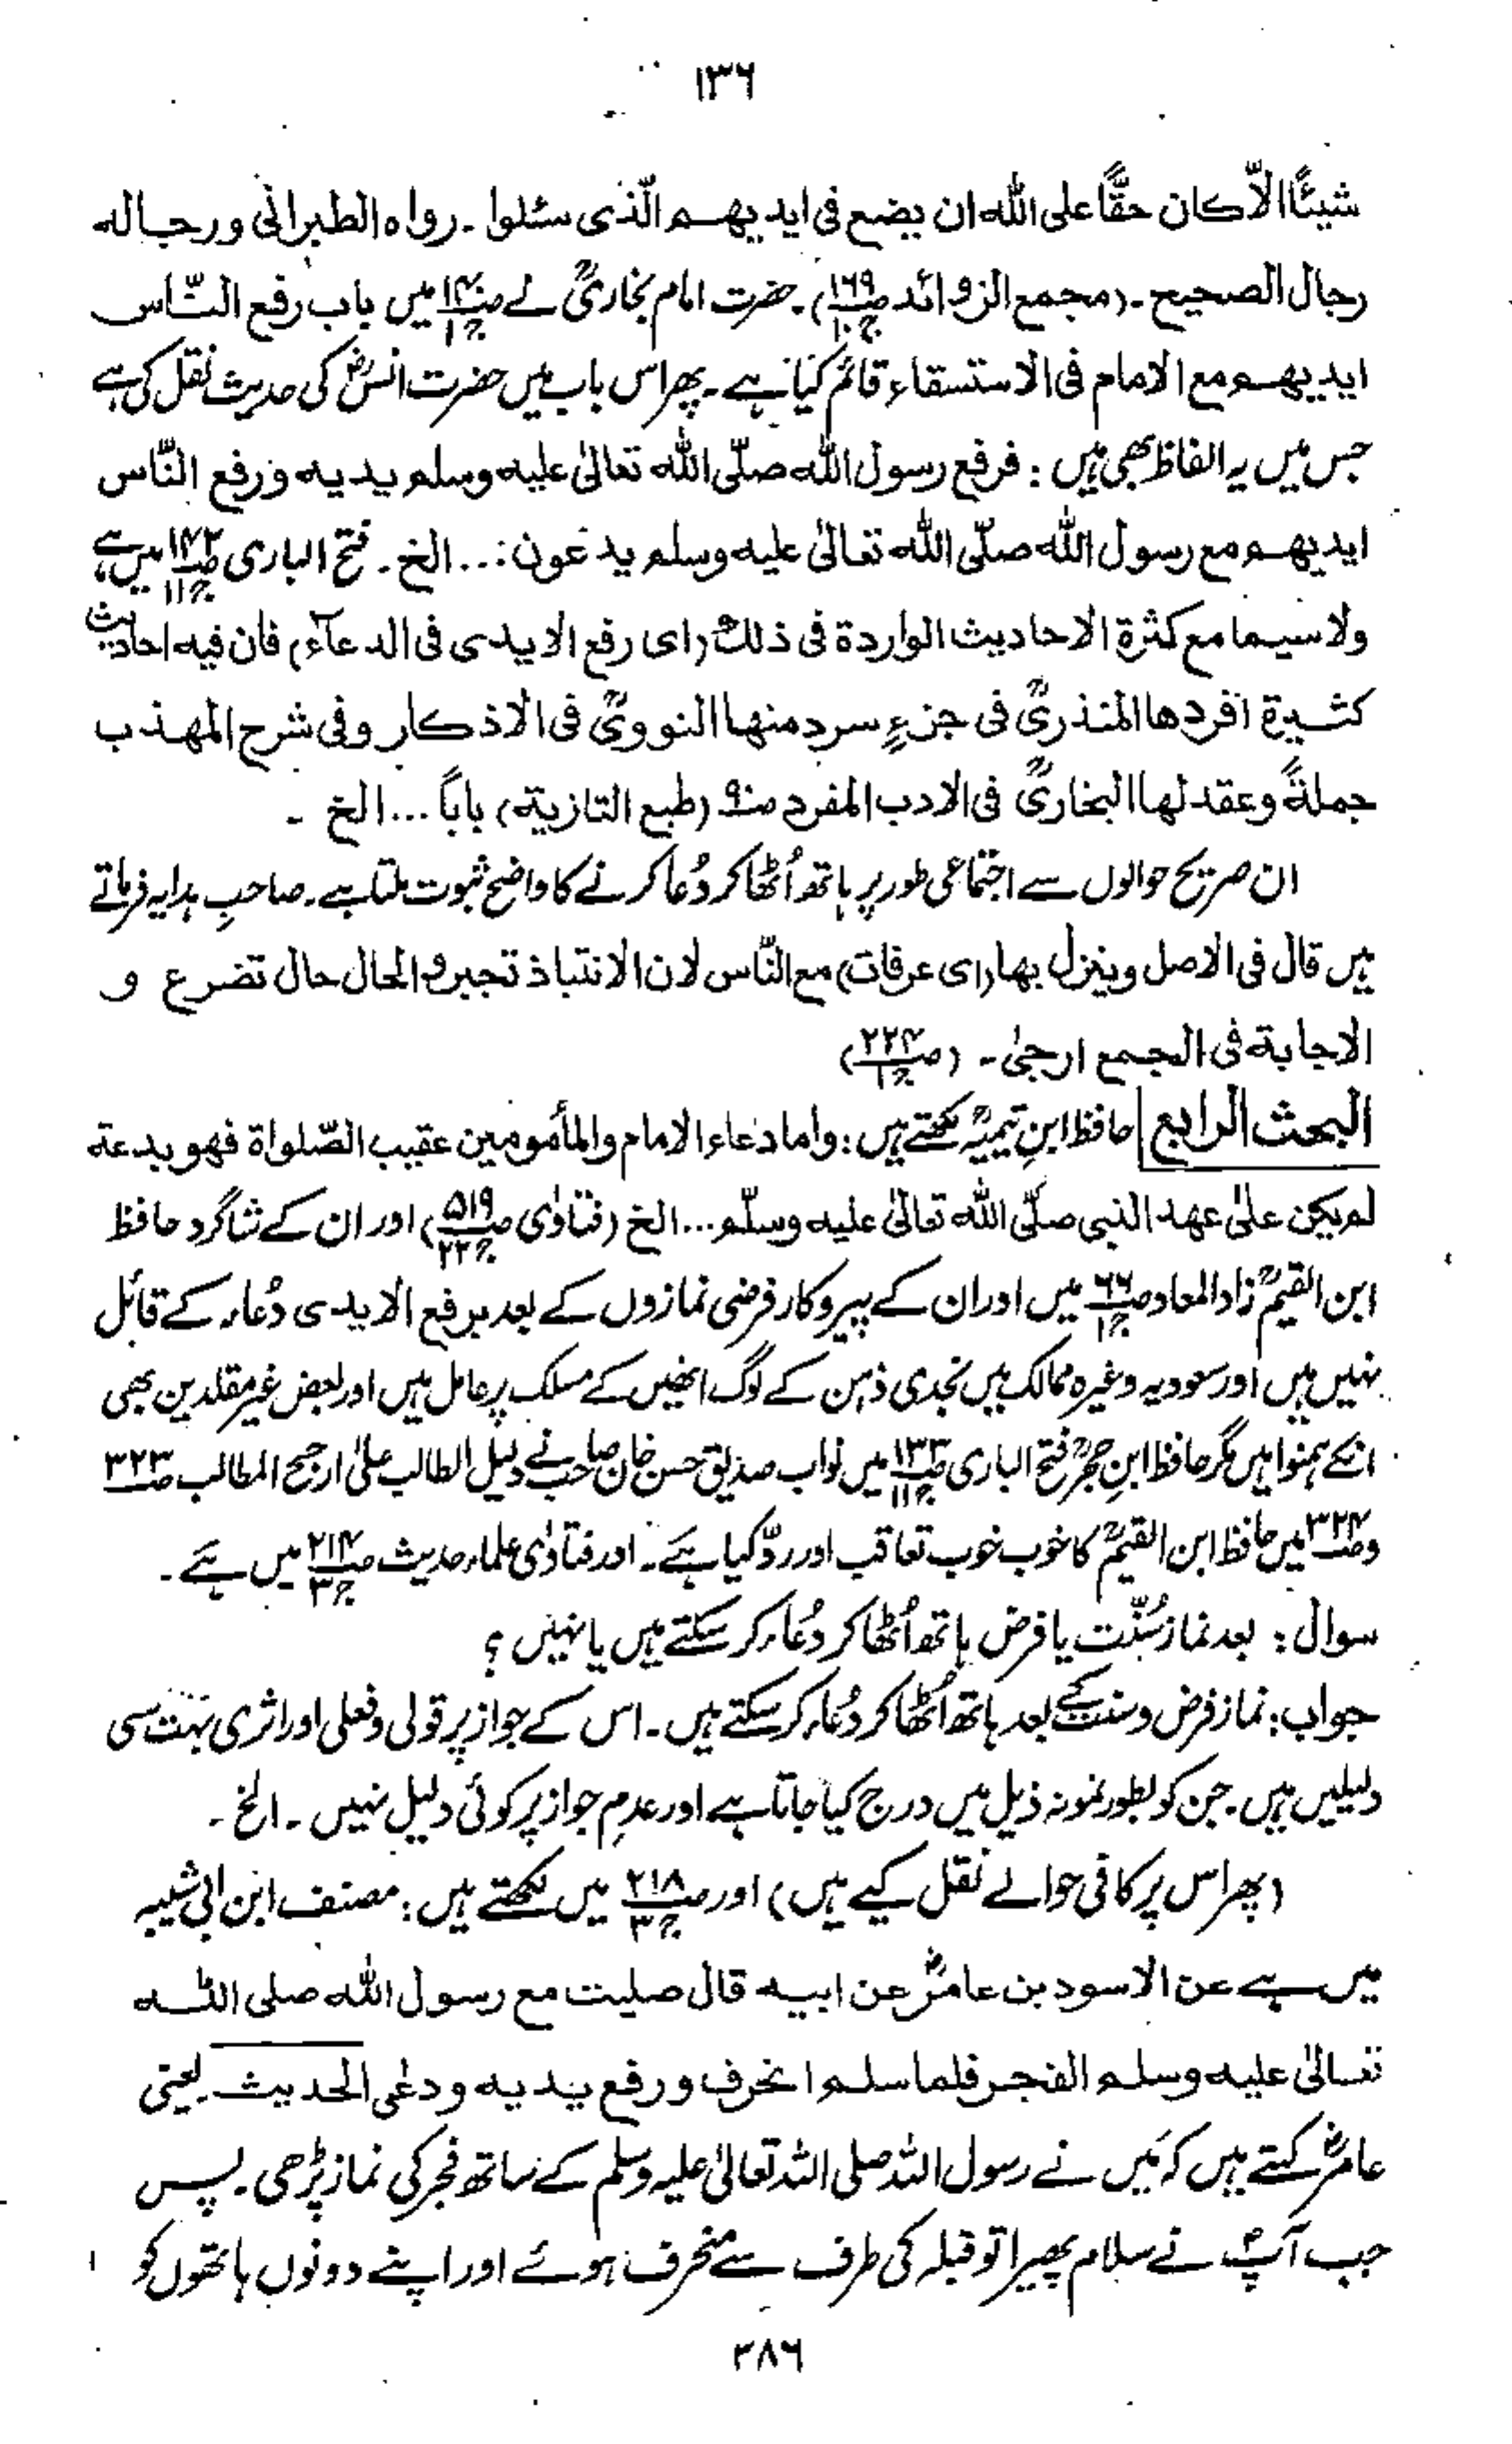 ۱۳۶
شیئًا الّا کان حقًّا علی اللہ ان یضع فی ایدیھم الّذی سئلوا ۔ رواہ الطبرانی ورجالہ
رجال الصحیح ۔ (مجمع الزوائد ص۱۶۹ ج۱۰) ۔ حضرت امام بخاریؒ نے ص۱۴۰ ج۱ میں باب رفع النّاس
ایدیھم مع الامام فی الاستسقاء قائم کیا ہے ۔ پھر اس باب میں حضرت انسؓ کی حدیث نقل کی ہے
جس میں یہ الفاظ بھی ہیں : فرفع رسول اللہ صلّی اللہ تعالیٰ علیہ وسلم یدیہ ورفع النّاس
ایدیھم مع رسول اللہ صلّی اللہ تعالیٰ علیہ وسلم یدعون :... الخ ۔ فتح الباری ص۱۴۲ ج۱۱ میں ہے
ولاسیما مع کثرۃ الاحادیث الواردۃ فی ذلک (ای رفع الایدی فی الدعاء) فان فیہ احادیث
کثیرۃ افردھا المنذریؒ فی جزءٍ سرد منھا النوویؒ فی الاذکار وفی شرح المھذب
جملۃً وعقد لھا البخاریؒ فی الادب المفرد ص۹۰ (طبع التازیۃ) باباً ... الخ ۔
ان صریح حوالوں سے اجتماعی طور پر ہاتھ اُٹھا کر دُعا کرنے کا واضح ثبوت ملتا ہے ۔ صاحبِ ہدایہ فرماتے
ہیں قال فی الاصل وینزل بھا (ای عرفات) مع النّاس لان الانتباذ تجبر والحال حال تضرع و
الاجابۃ فی الجمع ارجیٰ ۔ (ص۲۲۴ ج۱)
البحث الرابع حافظ ابنِ تیمیہؒ لکھتے ہیں : واما دعاء الامام والمأمومین عقیب الصّلواۃ فھو بدعۃ
لم یکن علیٰ عھد النبی صلّی اللہ تعالیٰ علیہ وسلّم ... الخ (فتاوٰی ص۵۱۹ ج۲۲) اور ان کے شاگرد حافظ
ابن القیمؒ زاد المعاد ص۶۶ ج۱ میں اور ان کے پیروکار فرضی نمازوں کے بعد برفع الایدی دُعاء کے قائل
نہیں ہیں اور سعودیہ وغیرہ ممالک میں نجدی ذہن کے لوگ انھیں کے مسلک پر عامل ہیں اور بعض غیر مقلدین بھی
انکے ہمنوا ہیں مگر حافظ ابنِ حجرؒ فتح الباری ص۱۳۳ ج۱۱ میں نواب صدیق حسن خان صاحب نے دلیل الطالب علیٰ ارجح المطالب ص۳۲۳
وص۳۲۴ میں حافظ ابن القیمؒ کا خوب خوب تعاقب اور ردّ کیا ہے ۔ اور فتاوٰی علماء حدیث ص۲۱۴ ج۳ میں ہے ۔
سوال : بعد نماز سُنّت یا فرض ہاتھ اُٹھا کر دُعاء کر سکتے ہیں یا نہیں ؟
جواب : نماز فرض و سنت کے بعد ہاتھ اُٹھا کر دُعاء کر سکتے ہیں ۔ اس کے جواز پر قولی و فعلی اور اثری بہت سی
دلیلیں ہیں ۔ جن کو بطور نمونہ ذیل میں درج کیا جاتا ہے اور عدمِ جواز پر کوئی دلیل نہیں ۔ الخ ۔
(پھر اس پر کافی حوالے نقل کیے ہیں) اور ص۲۱۸ ج۳ میں لکھتے ہیں : مصنف ابن ابی شیبہ
میں ہے عن الاسود بن عامرؓ عن ابیہ قال صلیت مع رسول اللہ صلی اللہ
تعالیٰ علیہ وسلم الفجر فلما سلم انحرف ورفع یدیہ ودعی الحدیث یعنی
عامرؓ کہتے ہیں کہ مَیں نے رسول اللہ صلی اللہ تعالیٰ علیہ وسلم کے ساتھ فجر کی نماز پڑھی ۔ پس
جب آپؐ نے سلام پھیرا تو قبلہ کی طرف سے منحرف ہوئے اور اپنے دونوں ہاتھوں کو
۳۸۶